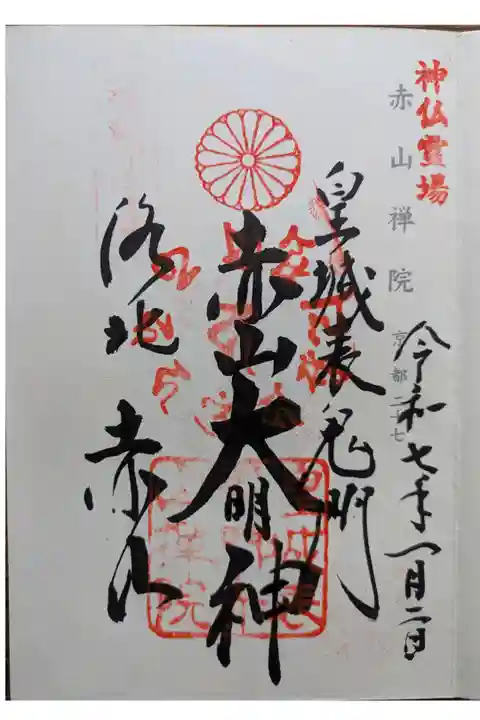 神仏霊場
赤山禅院
京都二十七
令和七年一月二日
皇城表鬼門
赤山大明神
洛北 赤山